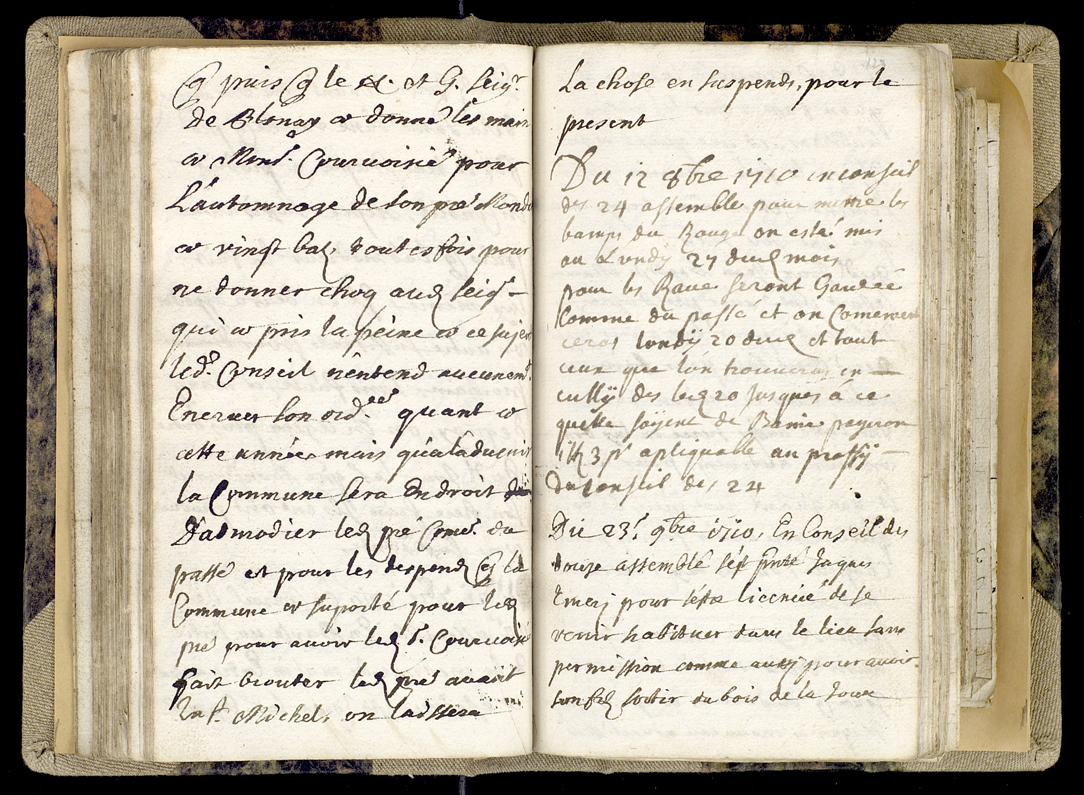 puis le et G. Seigr
De Blonay a donné les main
a Monsr. Courvoisié pour
L'automnage de son pré
a vingt baz toutesfois pour
ne donner choq aud Seigr
qui a pris la peine a ce sujet
led. Conseil n'entend aucunemt.
Enerver son ordce quant a
cette année mais qu'a l'advenir
la Commune sera En droit
D'admodier led pré Come. du
passé et pour les despend la
Commune a suporté pour led
pré pour avoir led Sr. Courvoisi
fait brouter led pré avant
la St. Michel, on laissera
La chose en suspends, pour le
present
Du 12 8bre 1710 en conseil
des 24 assemble pour mettre les
bamps du Rouge on esté mis
au Lundy 27 dud mois
pour les Rave seront Gardée
Comme du passé et on
lundy 20 dud et tout
ceux que l'on trouvera en
des led 20 jusques à ce
quelle soyent de payeront
3 pt apliquable au proffy
du conseil des 24
Du 23e. 9bre 1710, En Conseil des
douze assemblé s'est pnté Jaques
Emery pour s'estre licencié de se
venir habituer dans le lieu sans
permission comme aussy pour avoir
son fils sortir du bois de la Joux